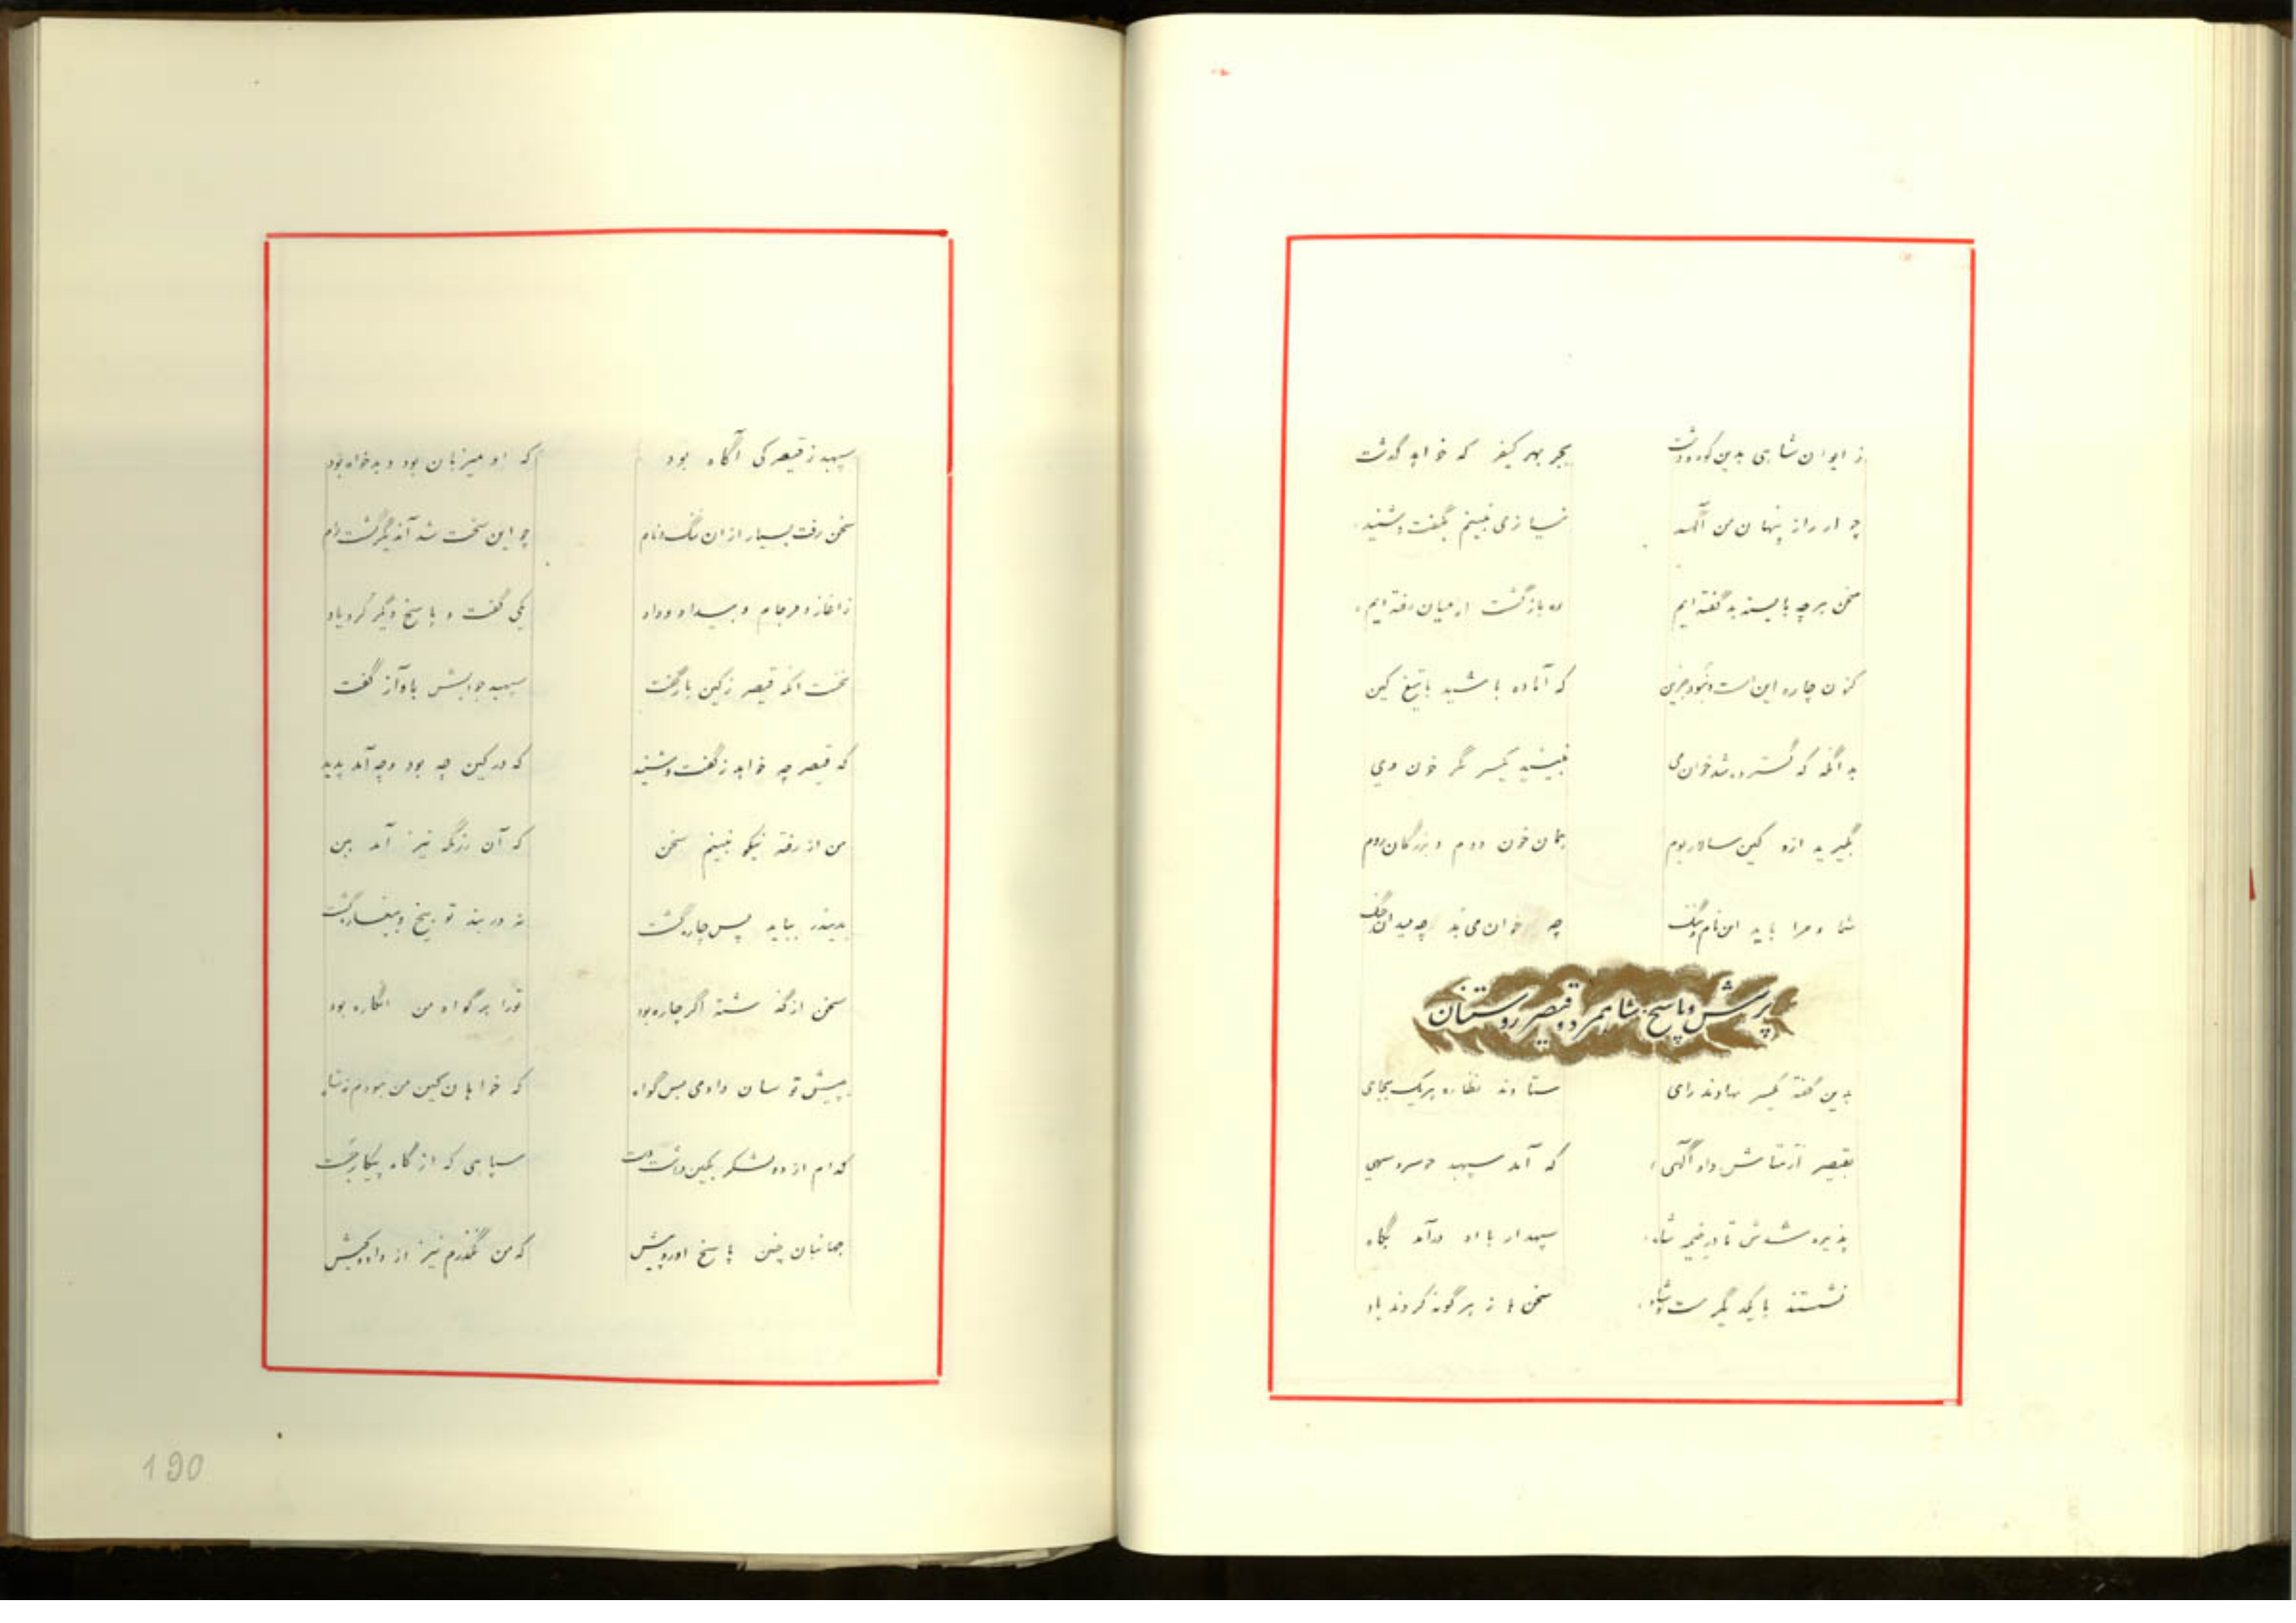 ز ایوان شاهی بدین کوه ودشت بجز بهر کیفر که خواهد گذشت
چو از راز پنهان من آگهید نیازی نبینم بگفت و شنید
سخن هرچه بایسته بد گفته ایم ره بازگشت از میان رفته ایم
کنون چاره این است و نبود جزین که آماده باشید با تیغ کین
بد آنگه که گسترده شد خوان می نبینید یکسر مگر خون وی
بگیرید ازو کین سالار بوم همان خون دوم و بزرگان روم
شما و مرا باید این نام و ننگ چه خوان می بد چه میدان جنگ
پرسش و پاسخ شاهمرد و قیصر روستان
بدین گفته یکسر نهادند رای ستادند نظاره هریک بجای
بقیصر داد آگهی که آمد سپهبد
پذیره شدش تا در خیمه شاه سپهدار با او درآمد بگاه
نشستند با یکدیگر سخن ها ز هر گونه کردند یاد
سپهبد ز قیصر کی آگاه بود که او میزبان بود و بدخواه بود
سخن رفت بسیار از ان ننگ و نام چو این سخت شد آندیگر گشت رام
ز اغاز و فرجام و بیداد و داد یکی گفت و پاسخ دیگر کرد یاد
نخست انکه قیصر ز کین بازگفت سپهبد جوابش باواز گفت
که قیصر چه خواهد ز گفت و شنید که در کین چه بود و چه آمد پدید
من از رفته نیکو نبینم سخن که آن رزمگه نیز آمد ببن
بباید پس چاره گشت نه در بند توبیخ و پیغاره گشت
سخن از گذشته اگر چاره بود تورا بر گواه من انگاره بود
بپیش تو سان دادمی بس گواه که خواهان کین من نبودم ز شاه
کدام از دو لشکر بکین داشت دست سپاهی که از گاه پیکار جست
جهانبان چنین پاسخ اورد پیش که من نگذرم نیز از داد و کیش
190